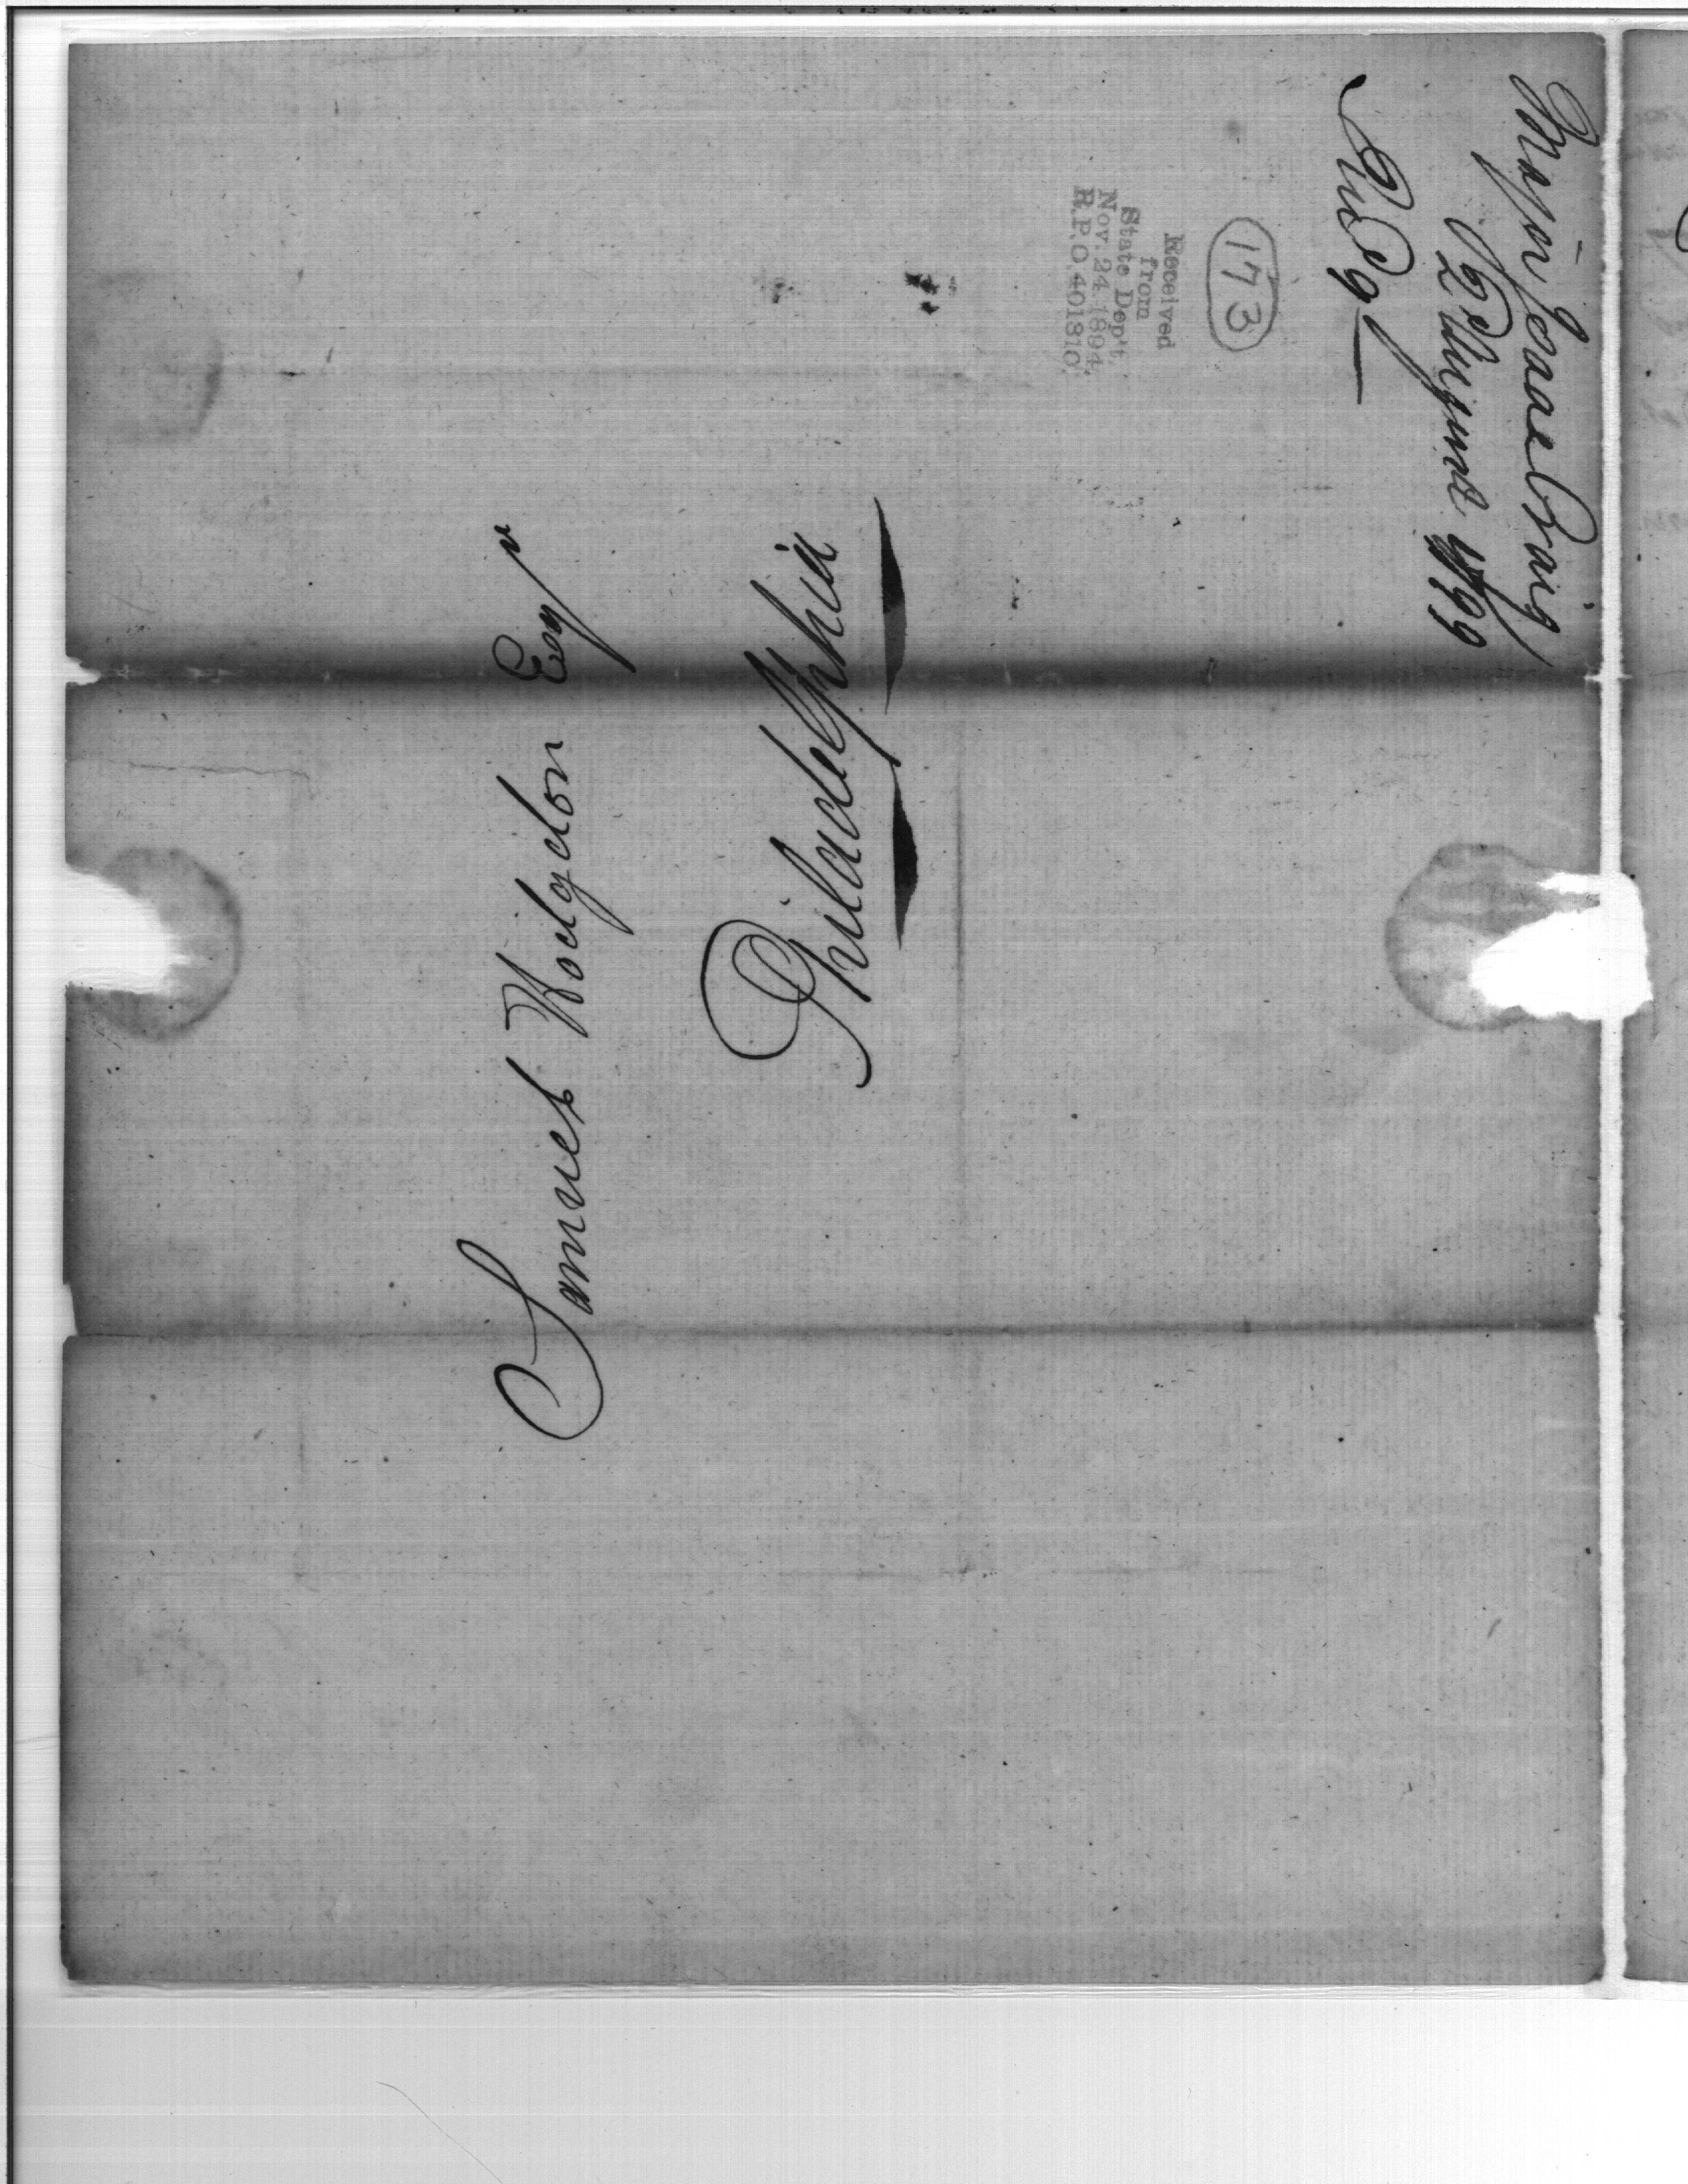 Samuel Hodgdon Esqr
Philadelphia
Major Isaac Craig
1799
173
Received
from
State Dep't.
Nov. 24, 1894,
R.P.O. 401310.